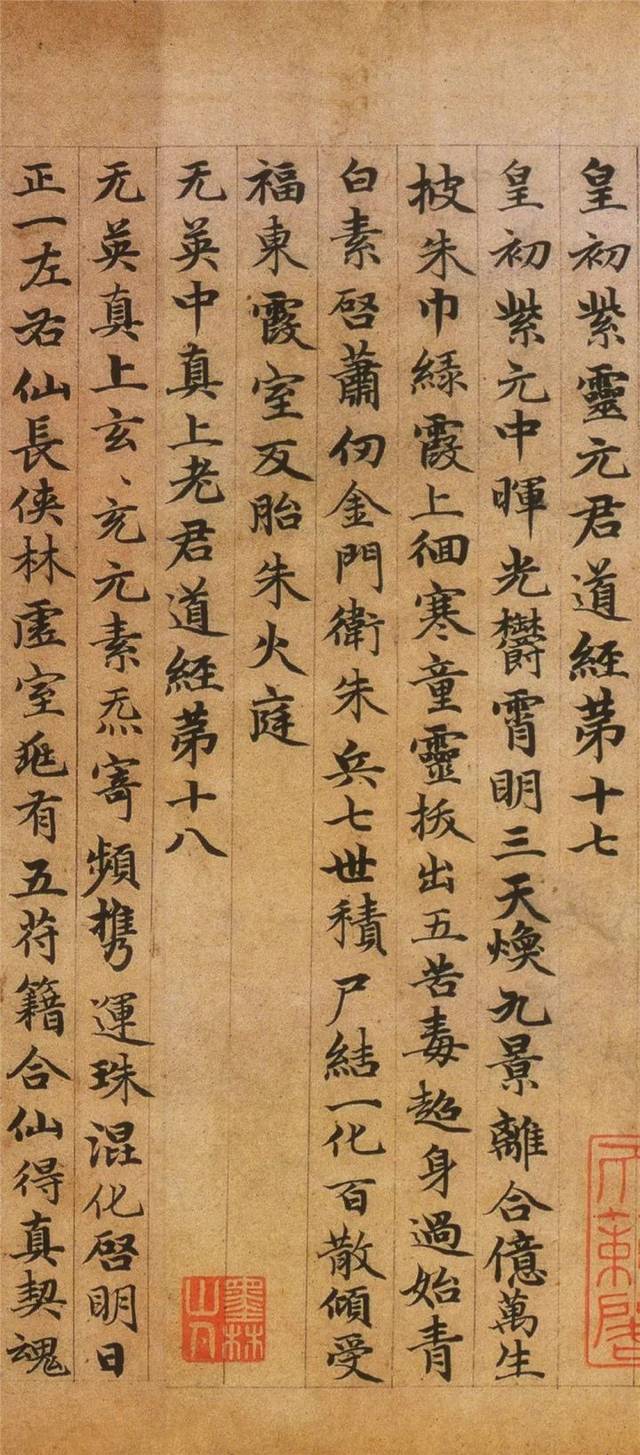 皇初紫靈元君道經苐十七
皇初紫元中暉光欝霄明三天煥九景離合億萬生
披朱巾綠霞上徊寒童靈拔出五苦毒超身過始青
白素啓蕭仞金門衛朱兵七世積尸結一化百散傾受
福東霞室反胎朱火庭
无英中真上老君道經苐十八
无英真上玄、充元素炁寄頻攜運珠混化啓明日
正一左右仙長俠林虛室還有五苻籍合仙得真契魂
墨林山人